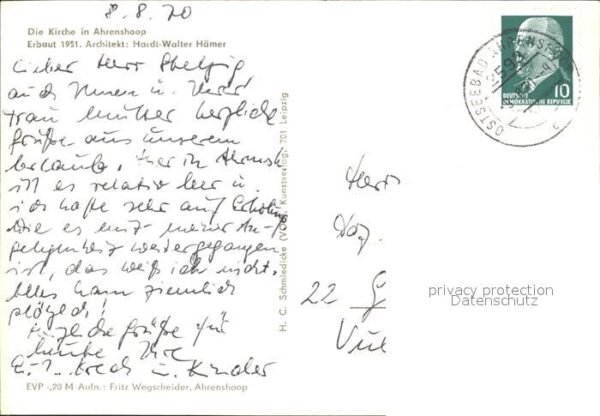 8.8.70
Die Kirche in Ahrenshoop
Erbaut 1951. Architekt: Hardt-Walter Hämer
Lieber Herr
auch Ihnen u. Ihrer
Frau Mutter herzliche
Grüße aus unserem
Urlaub. Hier in Ahrensh.
ist es relativ leer u.
ich hoffe sehr auf Erholung
Wie es mit meiner An-
gelegenheit weitergegangen
ist, das weiß ich nicht.
Alles kam ziemlich
plötzlich!
Herzliche Grüße für
heute Ihre
u. Kinder
EVP -,20 M Aufn.: Fritz Wegscheider, Ahrenshoop
H. C. Schmiedicke (VOB) Kunstverlag, 701 Leipzig
10
DEUTSCHE
DEMOKRATISCHE REPUBLIK
OSTSEEBAD AHRENSHOOP
2594
Herr
22 G
privacy protection
Datenschutz